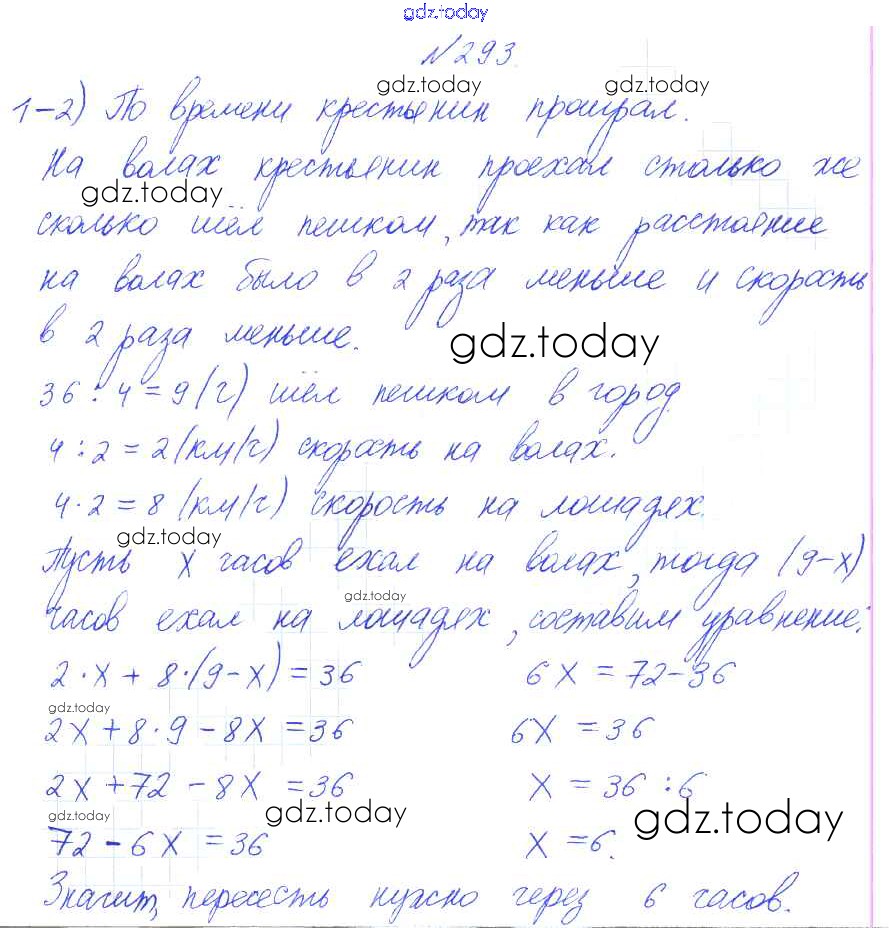 gdz.today
№293.
gdz.today gdz.today
1-2) По времени крестьянин проиграл.
На волах крестьянин проехал столько же
gdz.today
сколько шёл пешком, так как расстояние
на волах было в 2 раза меньше и скорость
в 2 раза меньше.
gdz.today
36 : 4 = 9 (ч) шёл пешком в город.
4 : 2 = 2 (км/ч) скорость на волах.
4 · 2 = 8 (км/ч) скорость на лошадях.
gdz.today
Пусть x часов ехал на волах, тогда (9-x)
gdz.today
часов ехал на лошадях, составим уравнение:
2 · x + 8 · (9 - x) = 36 6x = 72 - 36
gdz.today
2x + 8 · 9 - 8x = 36 6x = 36
2x + 72 - 8x = 36 x = 36 : 6
gdz.today gdz.today gdz.today
72 - 6x = 36 x = 6.
Значит, пересесть нужно через 6 часов.